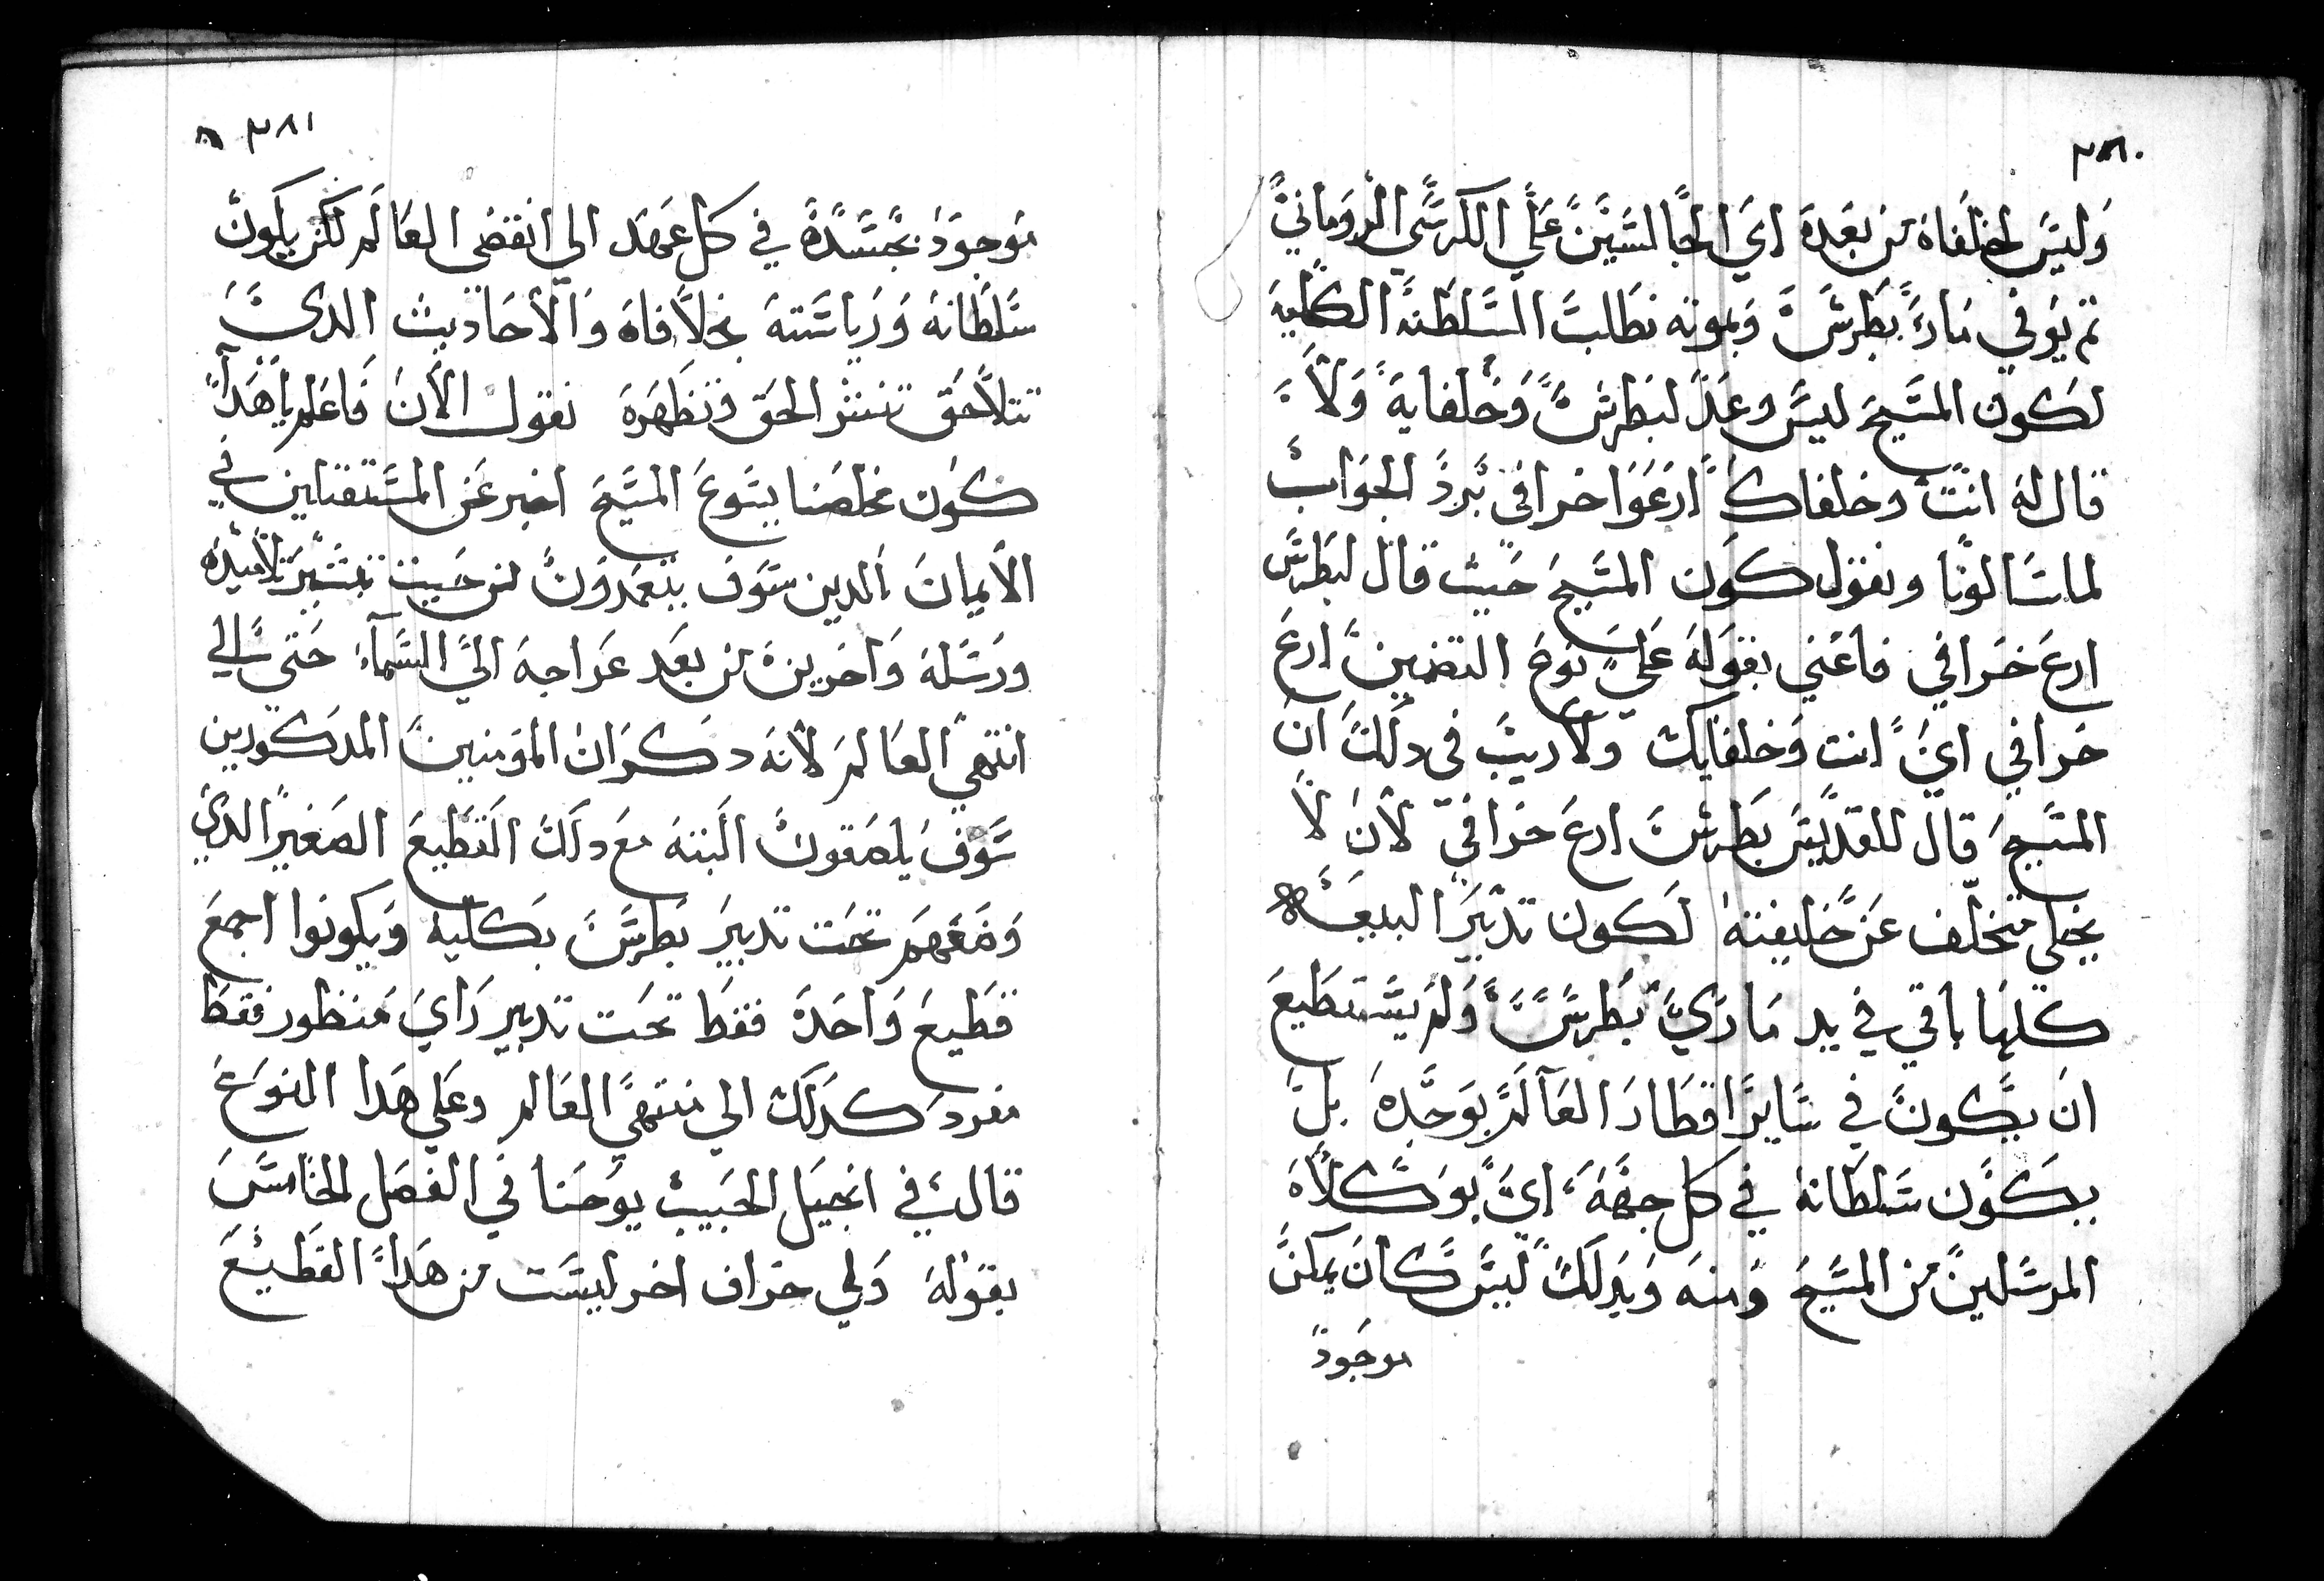 ٣٨٠
وليس لخلفاة من بعده اي الجالسين علي الكرسي الروماني
تم توفي ماري بطرس وبموته بطلت السلطنه الكليه
لكون المسيح ليس وعد لبطرس وخلفايه ولا
قال له انت وخلفاك ارعوا خرافي نرد الجواب
لما سالونا ونقول كون المسيح حيث قال لبطرس
ارع خرافي فاعني بقوله علي نوع التضمين ارع
خرافي اي انت وخلفايك ولا ريب في دلك ان
المسيح قال للقديس بطرس ارع خرافي لان لا
يخلي متخلف عن خليفته لكون تدبير البيعه
كلها باقي في يد ماري بطرس ولم يستطيع
ان يكون في ساير اقطار العالم بوحده بل
يكون سلطانه في كل جهه اي بوكلاه
المرسلين من المسيح ومنه وبدلك ليس كان يمكن
موجود
٣٨١
موجود بجسده في كل عهد الي انقضي العالم لكن يكون
سلطانه ورياسته بخلافاه والاحاديث الدي
تتلاحق تنشر الحق وتظهره نقول الان فاعلم ياهدا
كون مخلصنا يسوع المسيح اخبر عن المستقتلين في
الايمان الدين سوف يتعمدون من حيت تبشير تلاميده
ورسله واخرين من بعد عراجه الي السماء حتي الي
انتهي العالم لانه دكر ان المومنين المدكورين
سوف يلصقون البته مع دلك القطيع الصغير الدي
وضعهم تحت تدبير بطرس بكليه ويكونوا اجمع
قطيع واحده فقط تحت تدبير راي منظور فقط
مفرد كدلك الي منتهي العالم وعلي هدا النوع
قال في انجيل الحبيب يوحنا في الفصل الخامس
بقوله ولي خراف اخر ليست من هدا القطيع